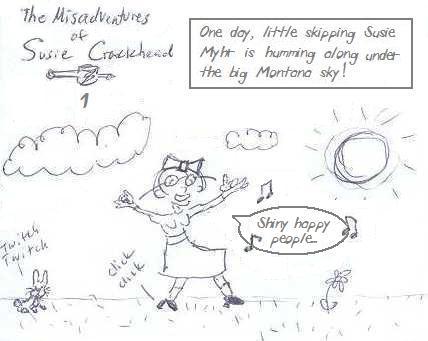 The Misadventures
of
Susie Crackhead
1
One day, little skipping Susie
Myhr is humming along under
the big Montana sky!
Shiny happy
people...
Twitch
Twitch
click
click